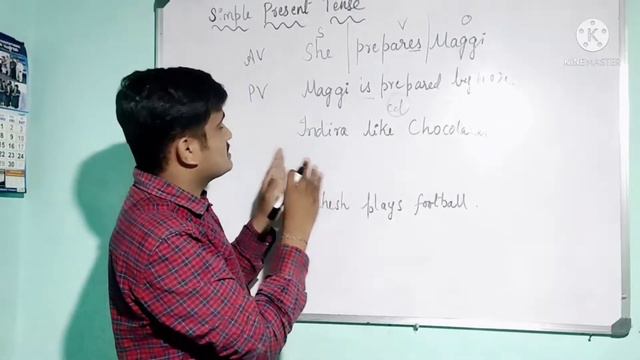 Simple Present Tense
S V O
AV She | prepares | Maggi
PV Maggi is prepared by
Indira like
plays football.
KINEMASTER